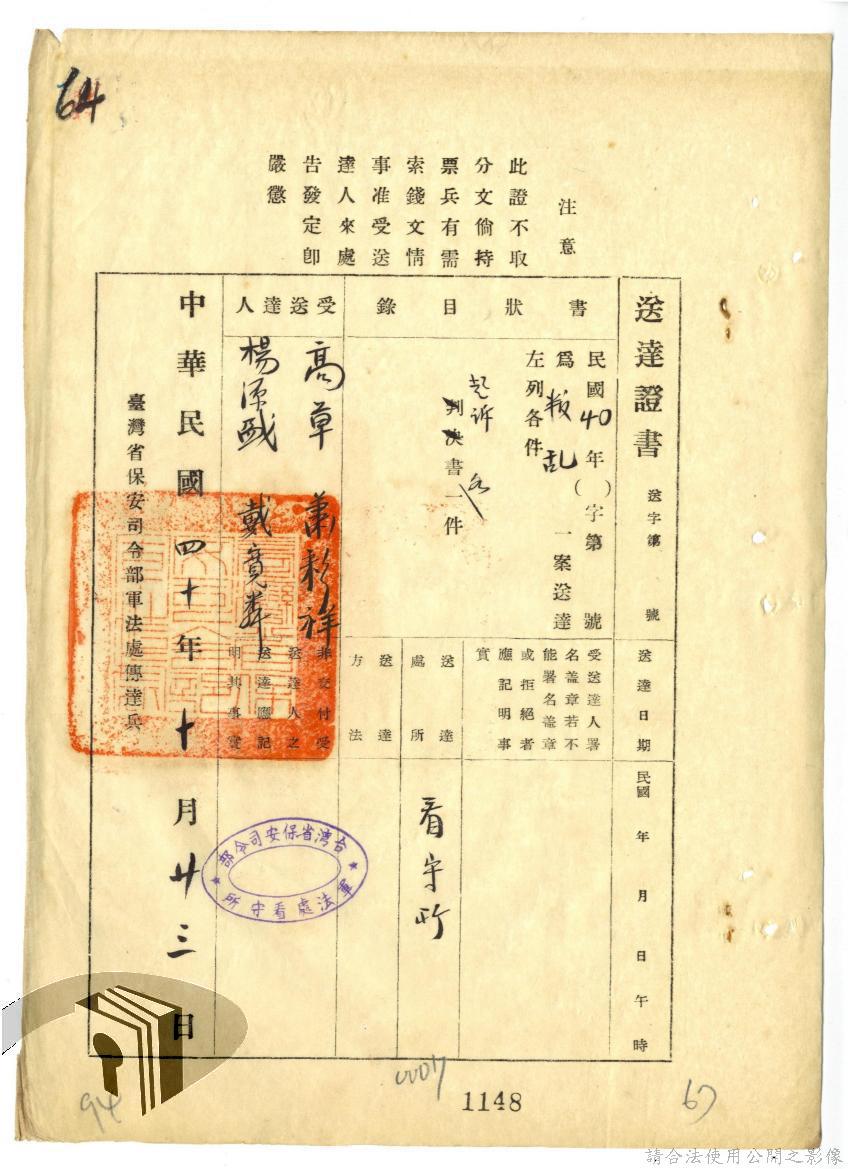 64
注意
此證不取
分文倘持
票兵有需
索錢文情
事准受送
達人來處
告發定卽
嚴懲
送達證書
送字第 號
書狀目錄
民國40年( )字第 號
爲叛乱 一案送達
左列各件
起訴
判決書一件
各
受送達人
高草
楊
戴
送達日期
民國 年 月 日 午 時
受送達人署
名蓋章若不
能署名蓋章
或拒絕者
應記明事
實
送達處所
看守所
送達方法
非交付受
送達人之
送達應記
明其事實
中華民國四十年十月廿三日
臺灣省保安司令部軍法處傳達兵
台湾省保安司令部
軍法處看守所
94
00017
1148
67
請合法使用公開之影像